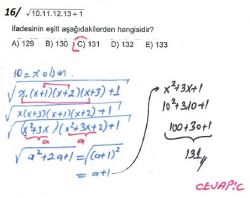 16/ √10.11.12.13 + 1
ifadesinin eşiti aşağıdakilerden hangisidir?
A) 129 B) 130 C) 131 D) 132 E) 133
10 = x olsun.
√x.(x+1)(x+2)(x+3) + 1
√x(x+3)(x+1)(x+2) + 1
√(x²+3x)(x²+3x+2)+1
a a
√a²+2a+1 = √(a+1)²
= a+1
x²+3x+1
10²+3.10+1
100+30+1
131
CEVAP: C